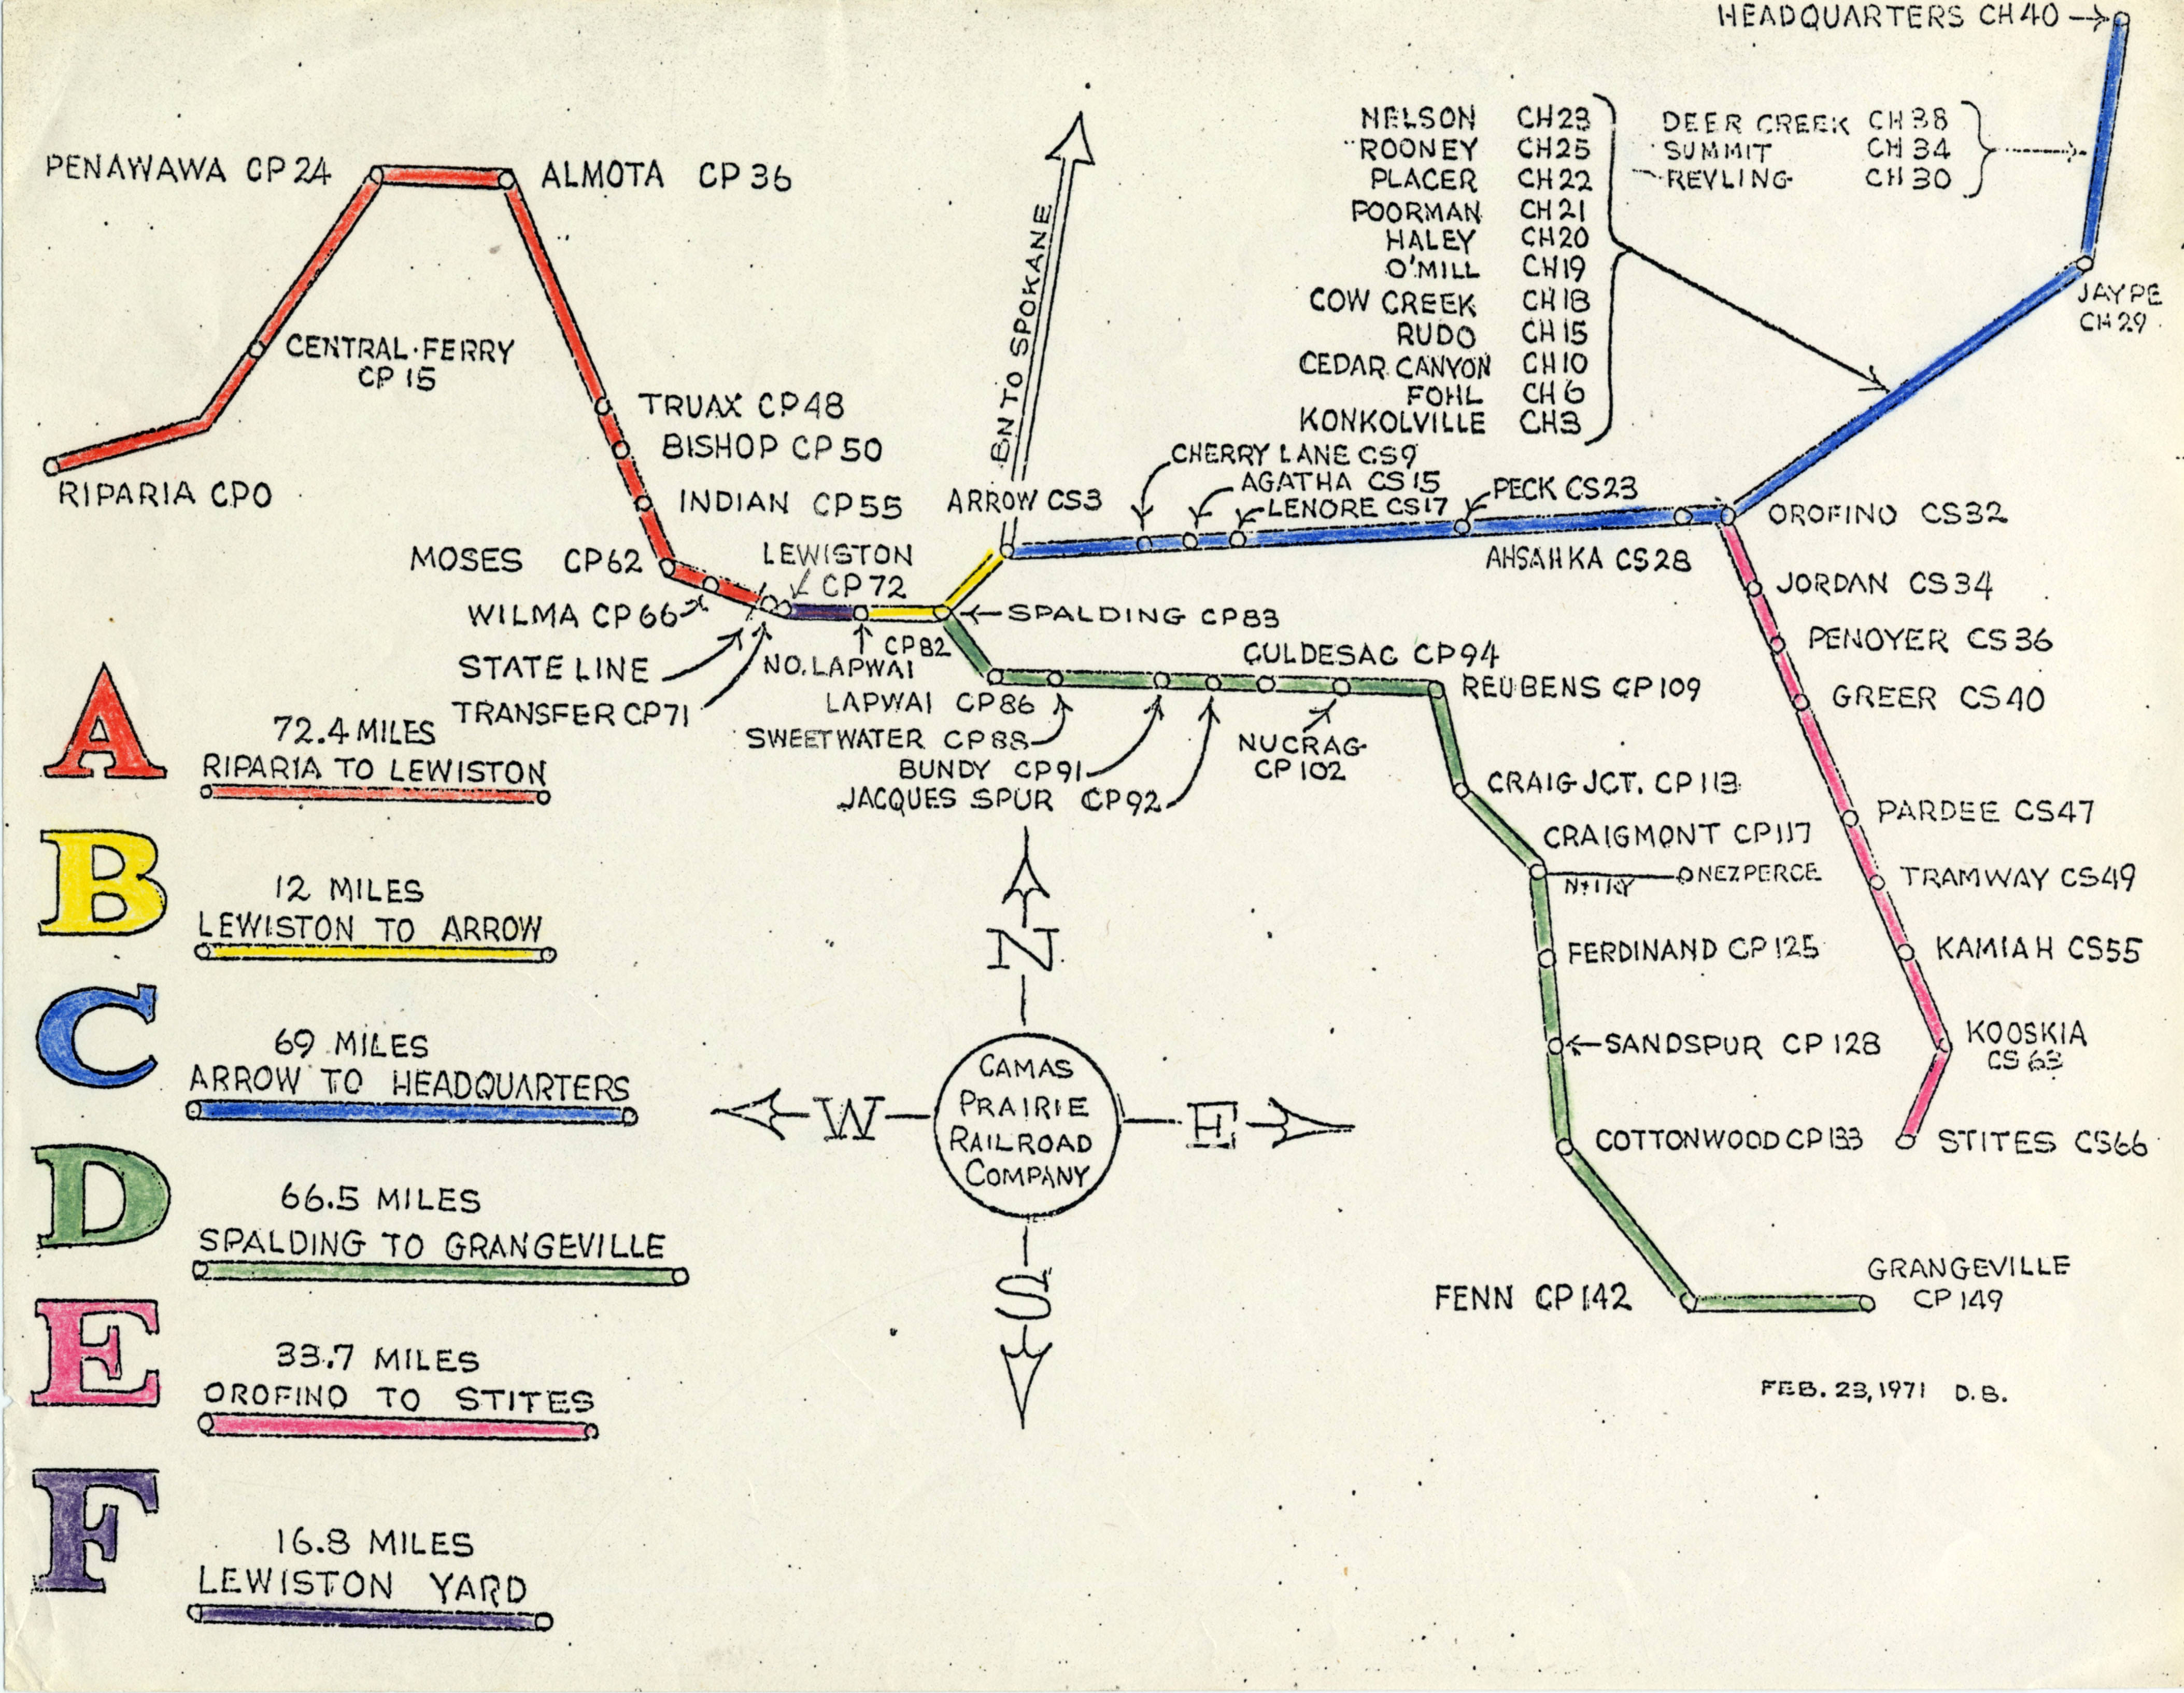 HEADQUARTERS CH40
NELSON CH23
ROONEY CH25
PLACER CH22
POORMAN CH21
HALEY CH20
O'MILL CH19
COW CREEK CH18
RUDO CH15
CEDAR CANYON CH10
FOHL CH6
KONKOLVILLE CH3
DEER CREEK CH38
SUMMIT CH34
REVLING CH30
JAYPE
CH29
PENAWAWA CP24
ALMOTA CP36
CENTRAL FERRY
CP15
RIPARIA CP0
TRUAX CP48
BISHOP CP50
INDIAN CP55
MOSES CP62
WILMA CP66
STATE LINE
TRANSFER CP71
LEWISTON
CP72
BN TO SPOKANE
ARROW CS3
CHERRY LANE CS9
AGATHA CS15
LENORE CS17
PECK CS23
AHSAHKA CS28
OROFINO CS32
JORDAN CS34
PENOYER CS36
GREER CS40
PARDEE CS47
TRAMWAY CS49
KAMIAH CS55
KOOSKIA
CS63
STITES CS66
SPALDING CP83
CP82
NO. LAPWAI
LAPWAI CP86
SWEETWATER CP88
BUNDY CP91
JACQUES SPUR CP92
CULDESAC CP94
NUCRAG
CP102
REUBENS CP109
CRAIG JCT. CP113
CRAIGMONT CP117
NEZPERCE
FERDINAND CP125
SANDSPUR CP128
COTTONWOOD CP133
FENN CP142
GRANGEVILLE
CP149
A
72.4 MILES
RIPARIA TO LEWISTON
B
12 MILES
LEWISTON TO ARROW
C
69 MILES
ARROW TO HEADQUARTERS
D
66.5 MILES
SPALDING TO GRANGEVILLE
E
33.7 MILES
OROFINO TO STITES
F
16.8 MILES
LEWISTON YARD
N
W
CAMAS
PRAIRIE
RAILROAD
COMPANY
E
S
FEB. 23, 1971 D.B.